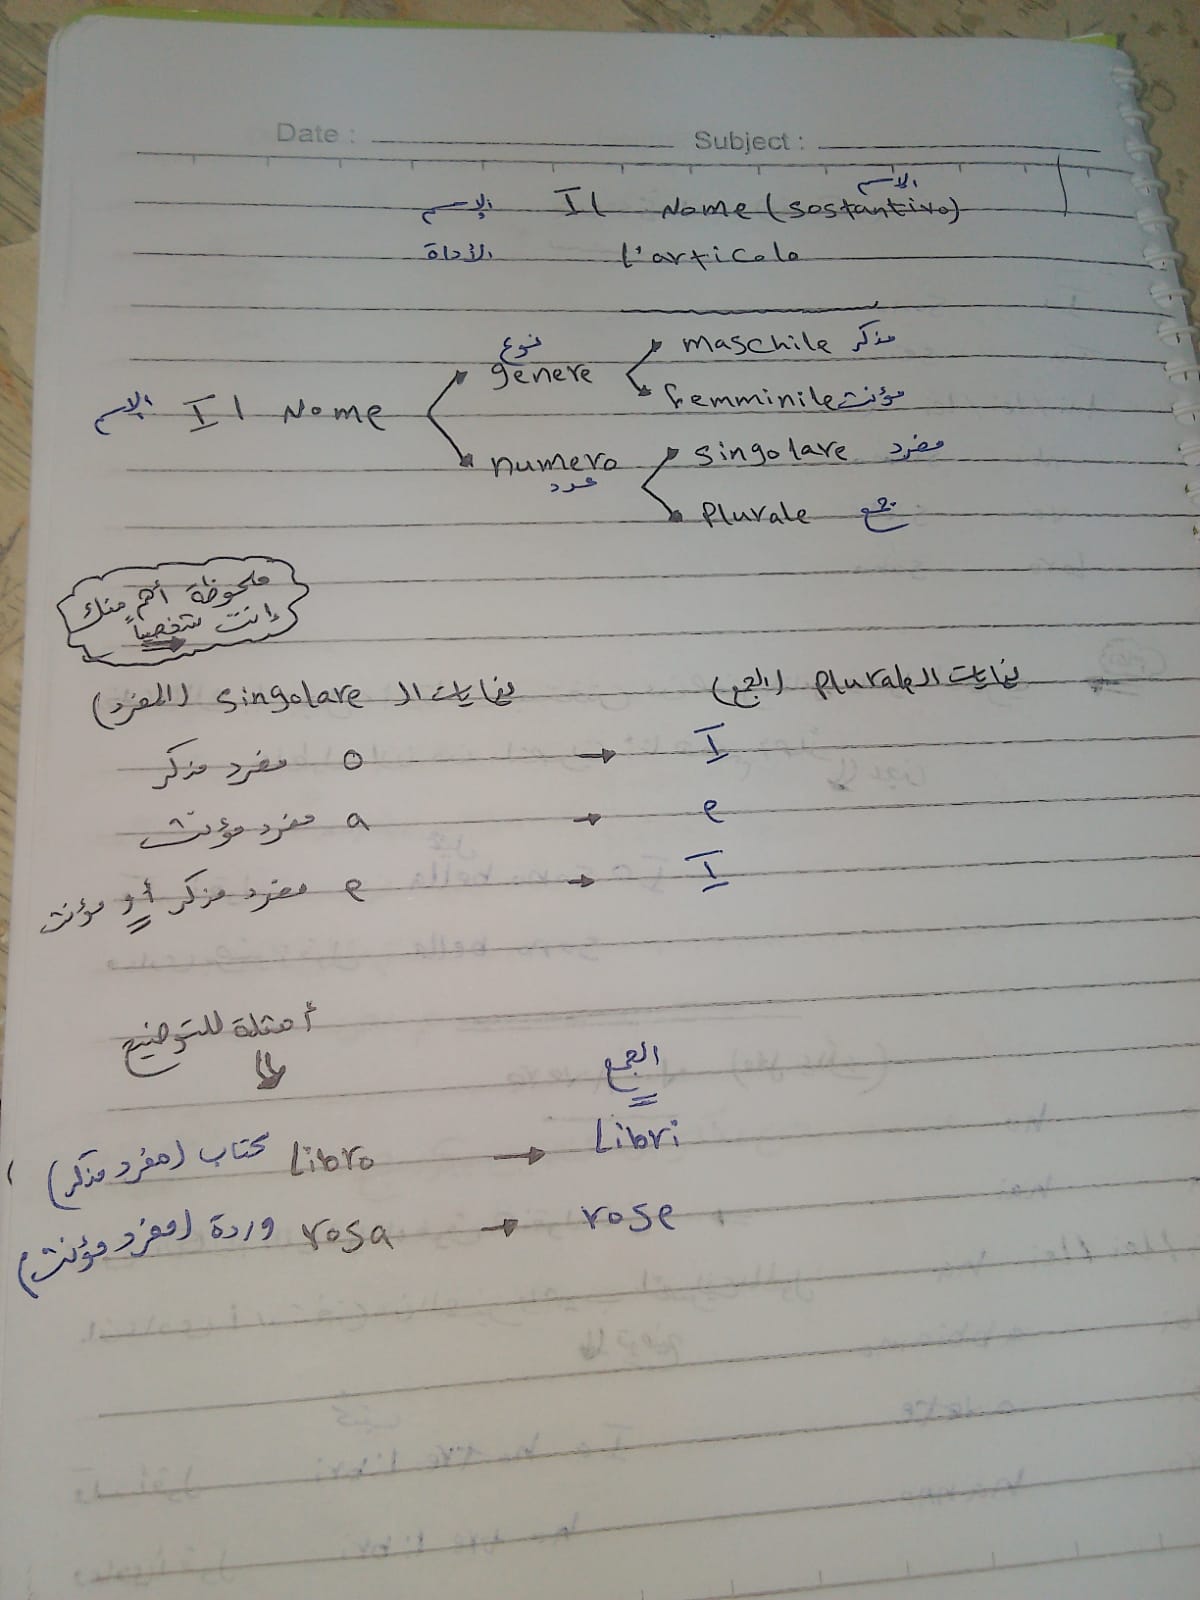 Date : Subject :
الاسم
الاسم Il Nome (sostantivo)
الأداة L'articolo
نوع
genere
maschile مذكر
femminile مؤنث
الاسم Il Nome
numero
عدد
singolare مفرد
Plurale جمع
ملحوظة أهم منك
إنت شخصياً
نهايات الـ singolare (المفرد)
نهايات الـ Plurale (الجمع)
مفرد مذكر o → I
مفرد مؤنث a → e
مفرد مذكر أو مؤنث e → I
أمثلة للتوضيح
الجمع
كتاب (مفرد مذكر) Libro → Libri
وردة (مفرد مؤنث) rosa → rose